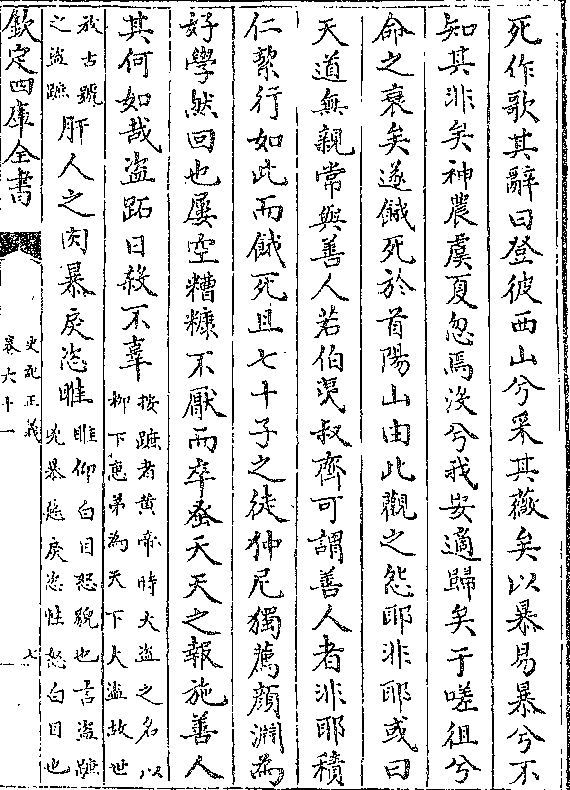 死作歌其辭曰登彼西山兮采其薇矣以暴易暴兮不
知其非矣神農虞夏忽焉沒兮我安適歸矣于嗟徂兮
命之衰矣遂餓死於首陽山由此觀之怨耶非耶或曰
天道無親常與善人若伯夷叔齊可謂善人者非耶積
仁絜行如此而餓死且七十子之徒仲尼獨薦顔淵為
好學然回也屢空糟糠不厭而卒蚤夭天之報施善人
其何如哉盗跖日殺不辜
按蹠者黄帝時大盗之名以
柳下惠弟為天下大盗故世
放古號
之盗蹠
肝人之肉暴戾恣睢
睢仰白目怒貌也言盗蹠
兇暴惡戾恣性怒白目也
欽定四庫全書
史記正義
卷六十一